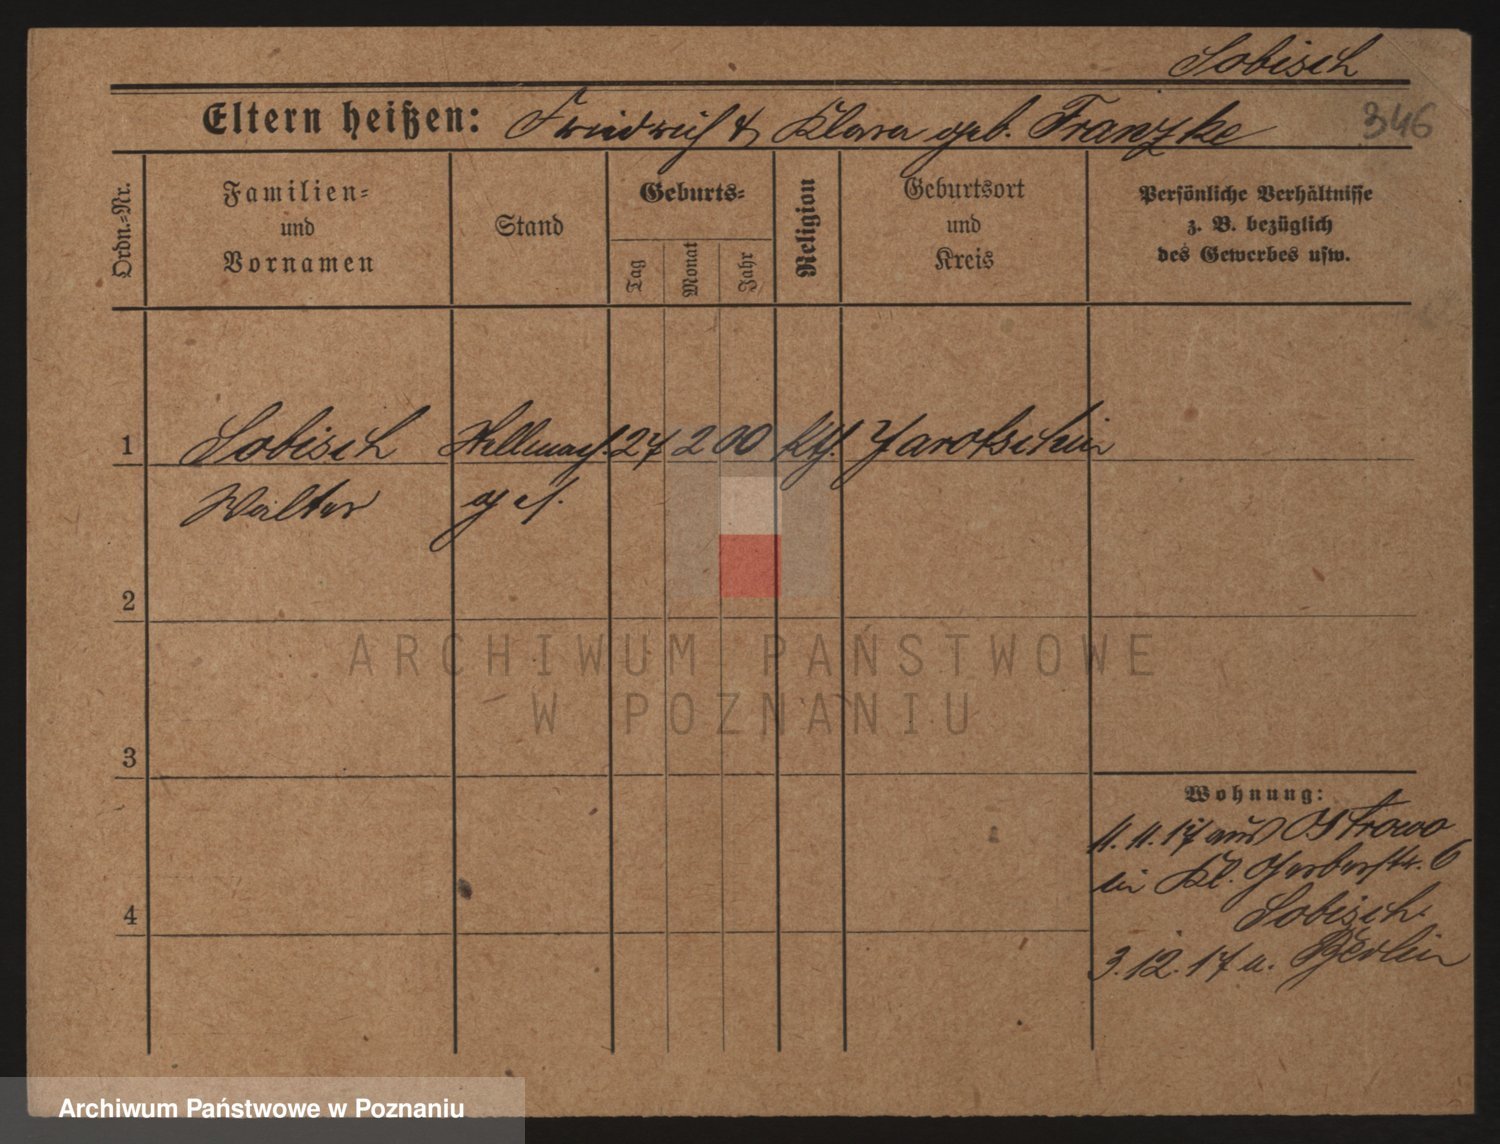 Sobisch
346
Eltern heißen: Friedrich & Klara geb. Franzke
Ordn.-Nr.
Familien-
und
Vornamen
Stand
Geburts-
Tag
Monat
Jahr
Religion
Geburtsort
und
Kreis
Persönliche Verhältnisse
z. B. bezüglich
des Gewerbes usw.
1 Sobisch Stellmach. 27 2 00 kth. Jarotschin
Walter ges.
2
3
4
Wohnung:
11. 11. 17 aus Ostrowo
in Kl. Gerberstr. 6
Sobisch.
3. 12. 17 n. Berlin
ARCHIWUM PAŃSTWOWE
W POZNANIU
Archiwum Państwowe w Poznaniu